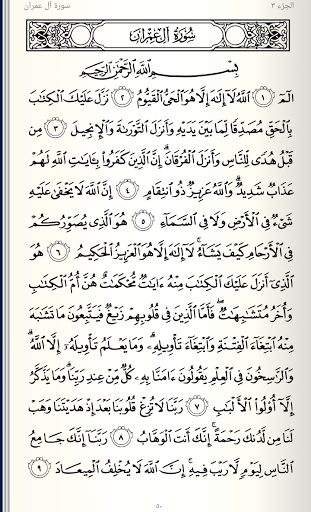 الجزء ٣ سورة آل عمران
سُورَةُ آلِ عِمْرَانَ
بِسْمِ ٱللَّهِ ٱلرَّحْمَٰنِ ٱلرَّحِيمِ
الٓمٓ ۝١ ٱللَّهُ لَآ إِلَٰهَ إِلَّا هُوَ ٱلْحَىُّ ٱلْقَيُّومُ ۝٢ نَزَّلَ عَلَيْكَ ٱلْكِتَٰبَ
بِٱلْحَقِّ مُصَدِّقًا لِّمَا بَيْنَ يَدَيْهِ وَأَنزَلَ ٱلتَّوْرَىٰةَ وَٱلْإِنجِيلَ ۝٣ مِن
قَبْلُ هُدًى لِّلنَّاسِ وَأَنزَلَ ٱلْفُرْقَانَ ۗ إِنَّ ٱلَّذِينَ كَفَرُوا۟ بِـَٔايَٰتِ ٱللَّهِ لَهُمْ
عَذَابٌ شَدِيدٌ ۗ وَٱللَّهُ عَزِيزٌ ذُو ٱنتِقَامٍ ۝٤ إِنَّ ٱللَّهَ لَا يَخْفَىٰ عَلَيْهِ
شَىْءٌ فِى ٱلْأَرْضِ وَلَا فِى ٱلسَّمَآءِ ۝٥ هُوَ ٱلَّذِى يُصَوِّرُكُمْ
فِى ٱلْأَرْحَامِ كَيْفَ يَشَآءُ ۚ لَآ إِلَٰهَ إِلَّا هُوَ ٱلْعَزِيزُ ٱلْحَكِيمُ ۝٦ هُوَ
ٱلَّذِىٓ أَنزَلَ عَلَيْكَ ٱلْكِتَٰبَ مِنْهُ ءَايَٰتٌ مُّحْكَمَٰتٌ هُنَّ أُمُّ ٱلْكِتَٰبِ
وَأُخَرُ مُتَشَٰبِهَٰتٌ ۖ فَأَمَّا ٱلَّذِينَ فِى قُلُوبِهِمْ زَيْغٌ فَيَتَّبِعُونَ مَا تَشَٰبَهَ
مِنْهُ ٱبْتِغَآءَ ٱلْفِتْنَةِ وَٱبْتِغَآءَ تَأْوِيلِهِۦ ۗ وَمَا يَعْلَمُ تَأْوِيلَهُۥٓ إِلَّا ٱللَّهُ ۗ
وَٱلرَّٰسِخُونَ فِى ٱلْعِلْمِ يَقُولُونَ ءَامَنَّا بِهِۦ كُلٌّ مِّنْ عِندِ رَبِّنَا ۗ وَمَا يَذَّكَّرُ
إِلَّآ أُو۟لُوا۟ ٱلْأَلْبَٰبِ ۝٧ رَبَّنَا لَا تُزِغْ قُلُوبَنَا بَعْدَ إِذْ هَدَيْتَنَا وَهَبْ
لَنَا مِن لَّدُنكَ رَحْمَةً ۚ إِنَّكَ أَنتَ ٱلْوَهَّابُ ۝٨ رَبَّنَآ إِنَّكَ جَامِعُ
ٱلنَّاسِ لِيَوْمٍ لَّا رَيْبَ فِيهِ ۚ إِنَّ ٱللَّهَ لَا يُخْلِفُ ٱلْمِيعَادَ ۝٩
٥٠